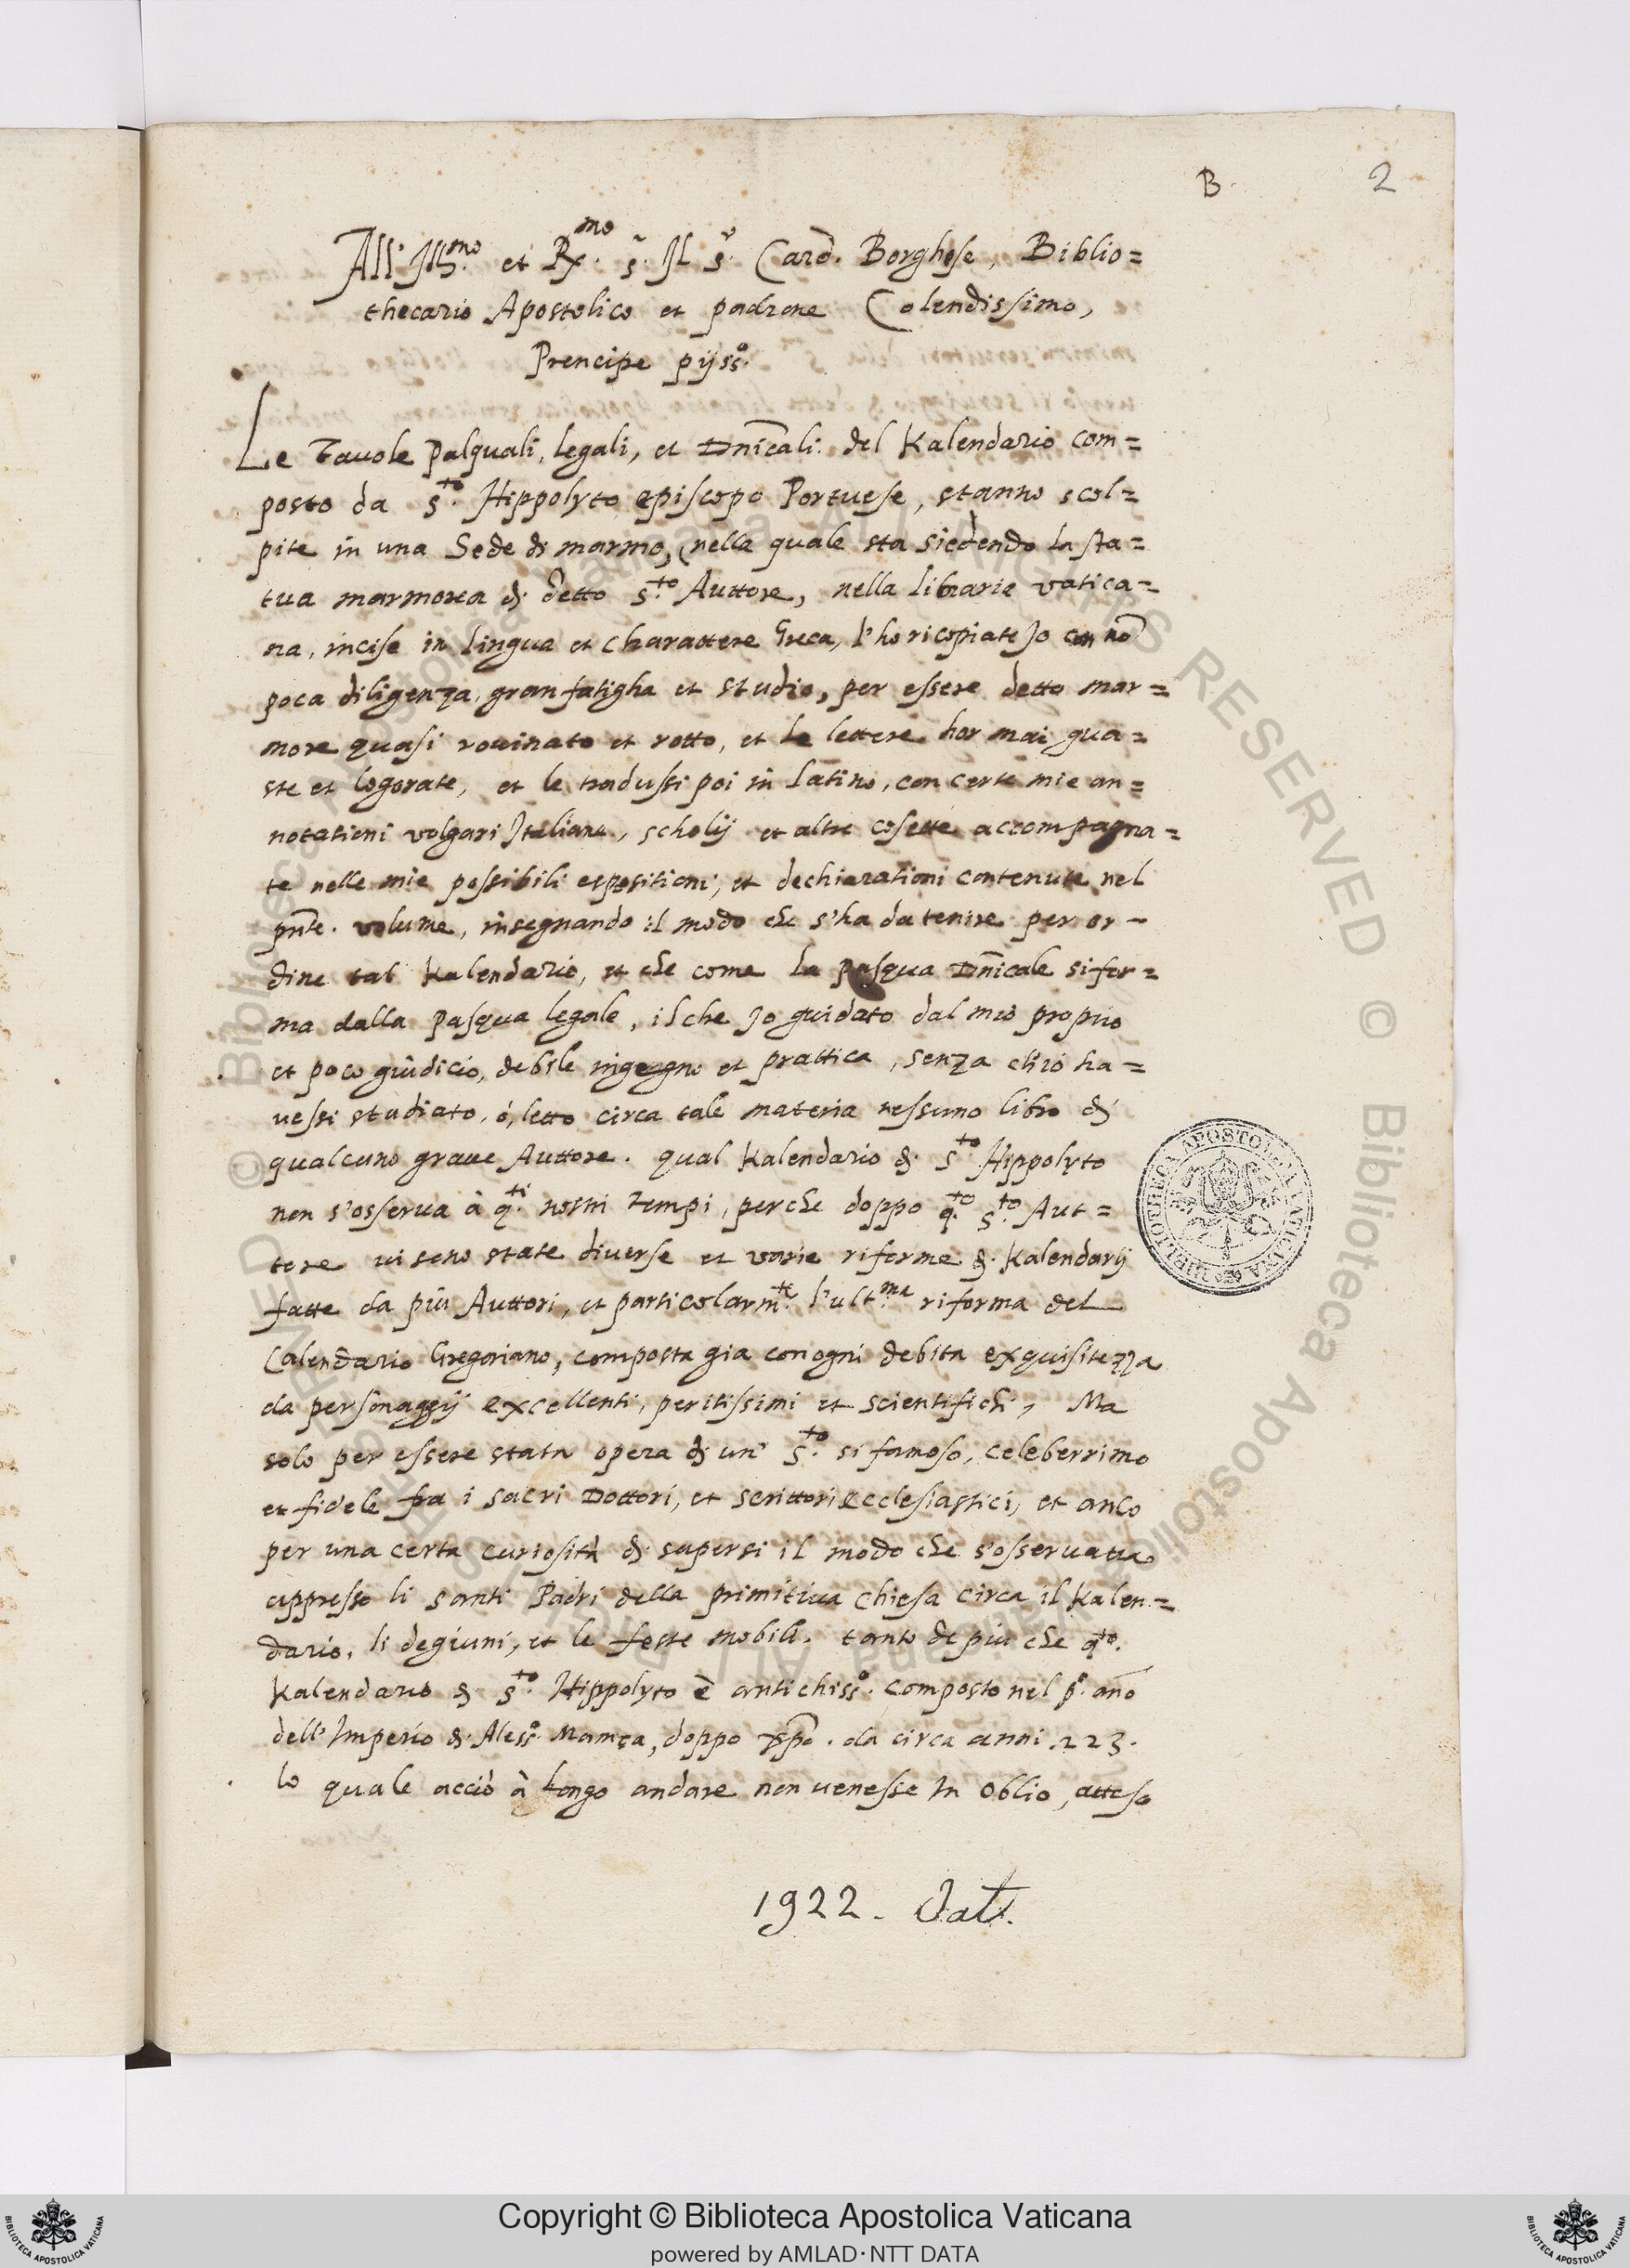 B. 2
All' Ill.mo et R.mo s. Il s.r Card. Borghese, Biblio=
thecario Apostolico et padrone Colendissimo,
Prencipe pijss.o
Le Tavole Pasquali, legali, et Dnicali. del Kalendario com=
posto da s.to Hippolyto episcopo Portuese, stanno scol=
pite in una Sede di marmo, (nella quale sta siedendo la sta=
tua marmorea di detto s.to Auttore, nella libraria vatica=
na, incise in lingua et charattere Greca, l'ho ricopiate Jo con nõ
poca diligenza, gran fatigha et studio, per essere detto mar=
more quasi rovinato et rotto, et le lettere hor mai gua=
ste et logorate, et le tradussi poi in latino, con certe mie an=
notationi volgari Italiane, scholij et altre cosette accompagna=
te nelle mie possibili espositioni, et dechiarationi contenute nel
pnte. volume, insegnando il modo che s'ha da tenire per or-
dine tal Kalendario, et che come la pasqua Dnicale si for=
ma dalla pasqua legale, ilche Jo guidato dal mio proprio
et poco giudicio, debile ingegno et prattica, senza ch'io ha=
vessi studiato, ó, letto circa tale materia nessuno libro di
qualcuno grave Auttore. qual Kalendario di s.to Hippolyto
non s'osserva à q.ti nostri tempi, perche doppo q.to s.to Aut=
tore vi sono state diverse et varie riforme di Kalendarij
fatte da più Auttori, et particolarm.te l'ult.ma riforma del
Calendario Gregoriano, composta gia con ogni debita exquisitezza
da personaggij excellenti, peritissimi et scientifichi, Ma
solo per essere stata opera di un' s.to si famoso, celeberrimo
et fidele fra i sacri Dottori, et scrittori ecclesiastici, et anco
per una certa curiosità di sapersi il modo che s'osservava
appresso li santi Padri della primitiva chiesa circa il Kalen=
dario, li degiuni, et le feste mobili, tanto de più che q.to
Kalendario di s.to Hippolyto è antichiss.o composto nel p.o ano
dell' Imperio di Aless.o Mamęa, doppo xpo. da circa anni .223.
lo quale acciò à longo andare non venesse in oblio, atteso
1922. Vat.
BIBLIOTHECA APOSTOLICA VATICANA
© Biblioteca Apostolica Vaticana ALL RIGHTS RESERVED
Copyright © Biblioteca Apostolica Vaticana
powered by AMLAD·NTT DATA
BIBLIOTECA APOSTOLICA VATICANA
BIBLIOTECA APOSTOLICA VATICANA